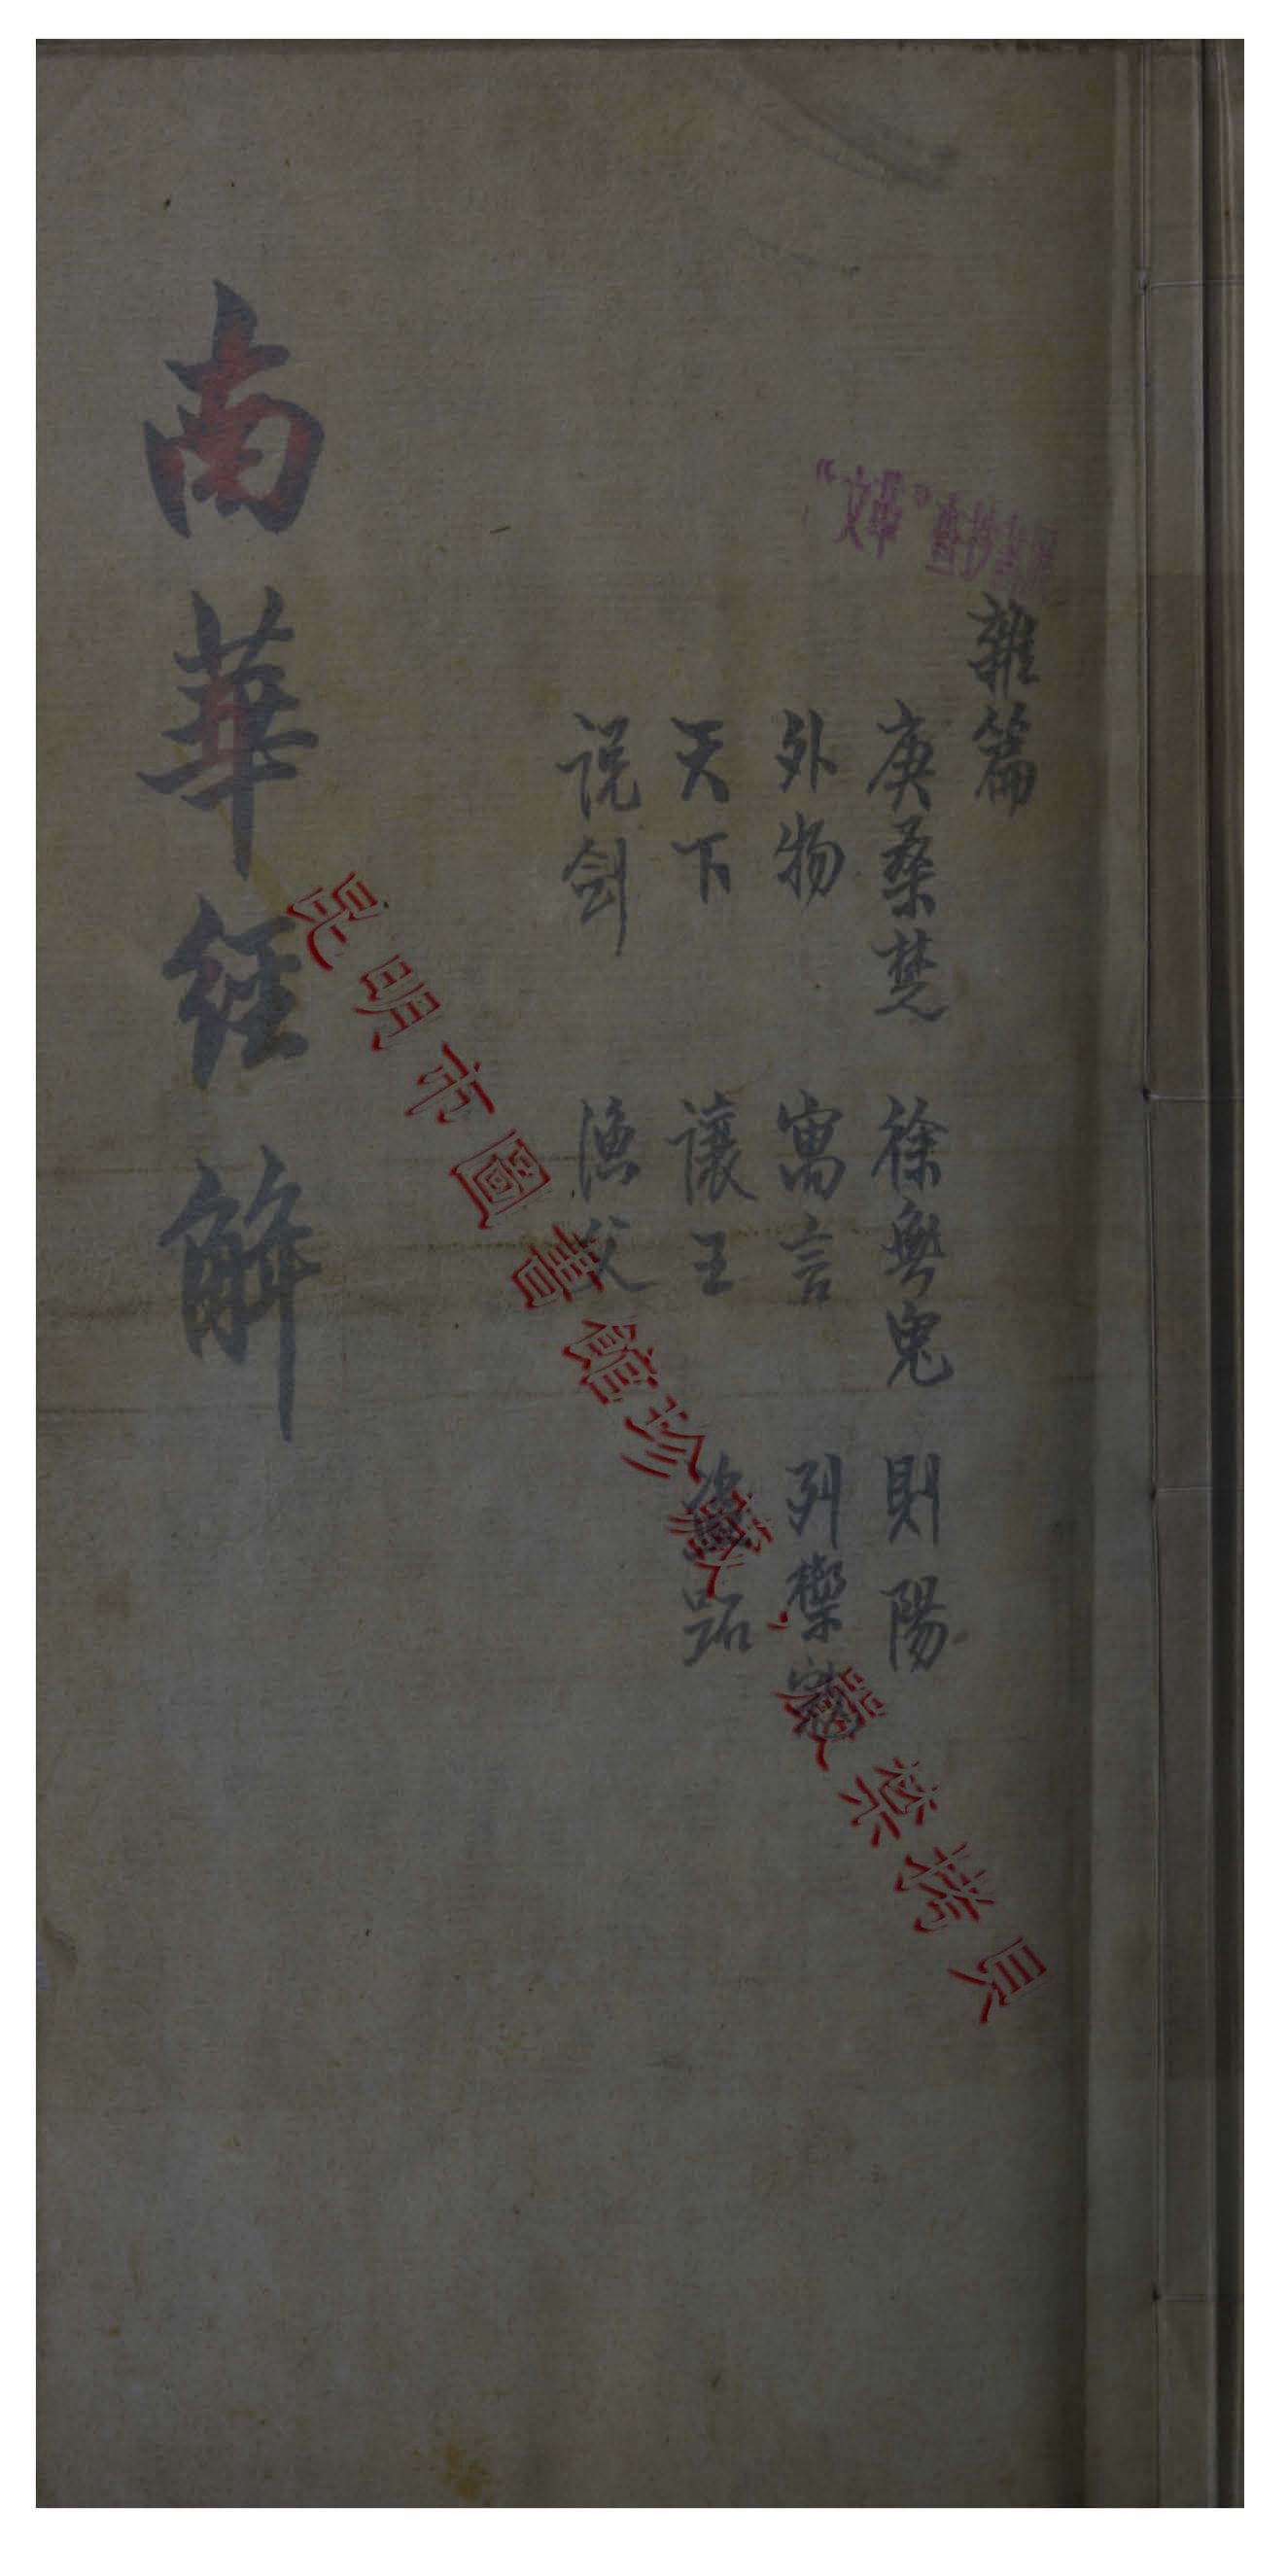 雜篇
庚桑楚 徐無鬼 則陽
外物 寓言 列禦寇
天下 讓王 盜跖
说劍 漁父
南華經解
"文革"查抄
昆明市圖書館珍藏，嚴禁拷貝